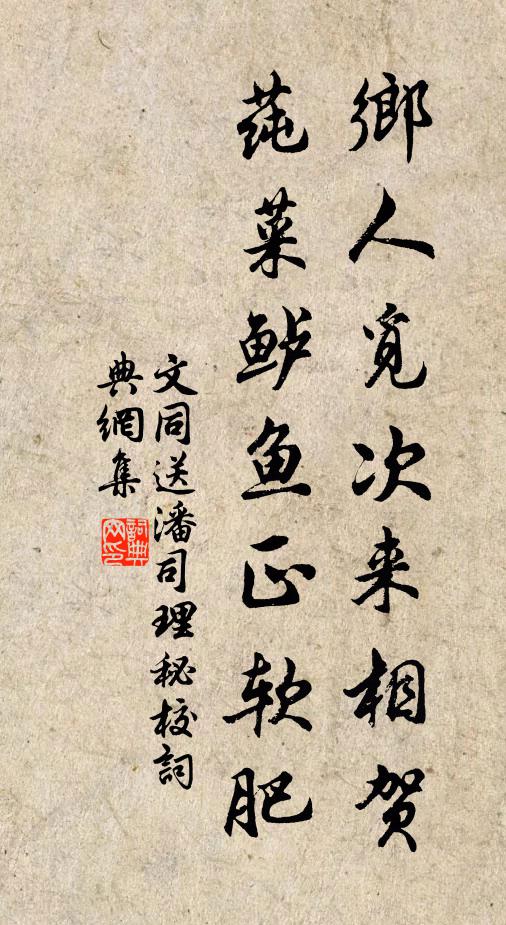 鄉人覓次来相贺
莼菜鲈鱼正软肥
文同送潘司理秘校詞
典網集
詞典网印